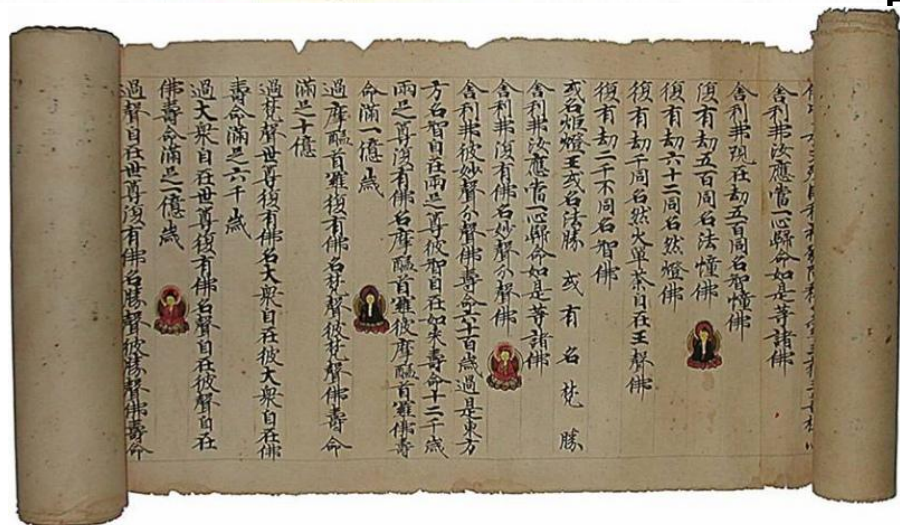 舍利弗汝應當一心歸命如是等諸佛
舍利弗現在劫五百同名智憧佛
復有劫五百同名法憧佛
復有劫六十二同名然燈佛
復有劫千同名然火單荼自在王聲佛
復有劫二千不同名智佛
或名炬燈王或名法勝 或有名梵勝
舍利弗汝應當一心歸命如是等諸佛
舍利弗復有佛名妙聲分聲佛
舍利弗彼妙聲分聲佛壽命六十百歲過是東方
方名智自在兩足尊彼智自在如來壽命十二千歲
兩足尊復有佛名摩醯首羅彼摩醯首羅佛壽
命滿一億歲
過摩醯首羅復有佛名梵聲彼梵聲佛壽命
滿足十億
過梵聲世尊復有佛名大衆自在彼大衆自在佛
壽命滿足六千歲
過大衆自在世尊復有佛名聲自在彼聲自在
佛壽命滿足一億歲
過聲自在世尊復有佛名勝聲彼勝聲佛壽命